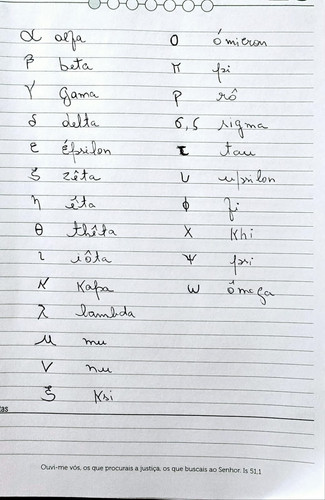 α alfa
β beta
γ gama
δ delta
ε épsilon
ζ zêta
η êta
θ thêta
ι iôta
κ Kapa
λ lambda
μ mu
ν nu
ξ Ksi
ο ómicron
π pi
ρ rô
σ,ς sigma
τ tau
υ upsilon
φ fi
χ Khi
ψ psi
ω ômega
tas
Ouvi-me vós, os que procurais a justiça, os que buscais ao Senhor. Is 51.1